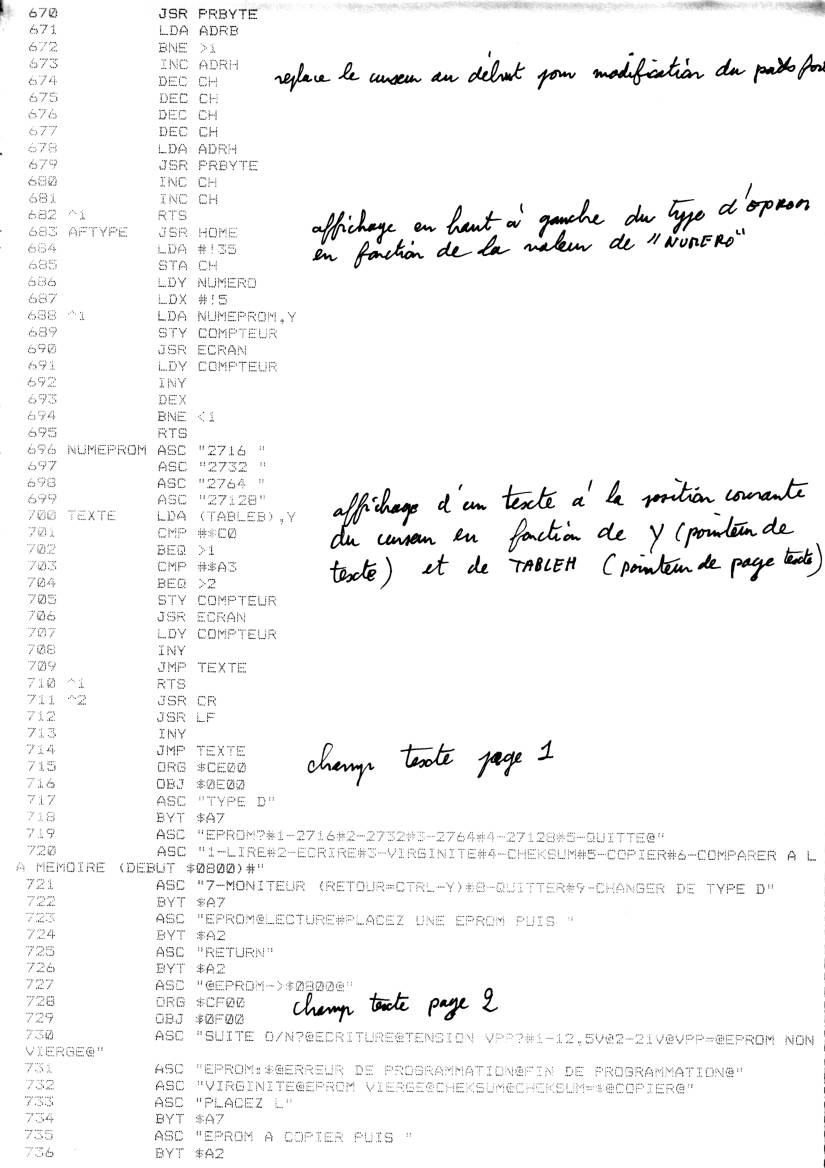 670 JSR PRBYTE
671 LDA ADRB
672 BNE >1
673 INC ADRH
replace le curseur au début pour modification du poids fort
674 DEC CH
675 DEC CH
676 DEC CH
677 DEC CH
678 LDA ADRH
679 JSR PRBYTE
680 INC CH
681 INC CH
682 ^1 RTS
affichage en haut à gauche du type d'EPROM
683 AFTYPE JSR HOME
en fonction de la valeur de "NUMERO"
684 LDA #!35
685 STA CH
686 LDY NUMERO
687 LDX #!5
688 ^1 LDA NUMEPROM,Y
689 STY COMPTEUR
690 JSR ECRAN
691 LDY COMPTEUR
692 INY
693 DEX
694 BNE <1
695 RTS
696 NUMEPROM ASC "2716 "
697 ASC "2732 "
698 ASC "2764 "
699 ASC "27128"
affichage d'un texte à la position courante
700 TEXTE LDA (TABLEB),Y
701 CMP #$C0
du curseur en fonction de Y (pointeur de
702 BEQ >1
703 CMP #$A3
texte) et de TABLEH (pointeur de page texte)
704 BEQ >2
705 STY COMPTEUR
706 JSR ECRAN
707 LDY COMPTEUR
708 INY
709 JMP TEXTE
710 ^1 RTS
711 ^2 JSR CR
712 JSR LF
713 INY
714 JMP TEXTE
champ texte page 1
715 ORG $CE00
716 OBJ $0E00
717 ASC "TYPE D"
718 BYT $A7
719 ASC "EPROM?#1-2716#2-2732#3-2764#4-27128#5-QUITTE@"
720 ASC "1-LIRE#2-ECRIRE#3-VIRGINITE#4-CHEKSUM#5-COPIER#6-COMPARER A L
A MEMOIRE (DEBUT $0800)#"
721 ASC "7-MONITEUR (RETOUR=CTRL-Y)#8-QUITTER#9-CHANGER DE TYPE D"
722 BYT $A7
723 ASC "EPROM@LECTURE#PLACEZ UNE EPROM PUIS "
724 BYT $A2
725 ASC "RETURN"
726 BYT $A2
727 ASC "@EPROM->$0800@"
728 ORG $CF00
champ texte page 2
729 OBJ $0F00
730 ASC "SUITE O/N?@ECRITURE@TENSION VPP?#1-12,5V@2-21V@VPP=@EPROM NON
VIERGE@"
731 ASC "EPROM:$@ERREUR DE PROGRAMMATION@FIN DE PROGRAMMATION@"
732 ASC "VIRGINITE@EPROM VIERGE@CHEKSUM@CHEKSUM=$@COPIER@"
733 ASC "PLACEZ L"
734 BYT $A7
735 ASC "EPROM A COPIER PUIS "
736 BYT $A2